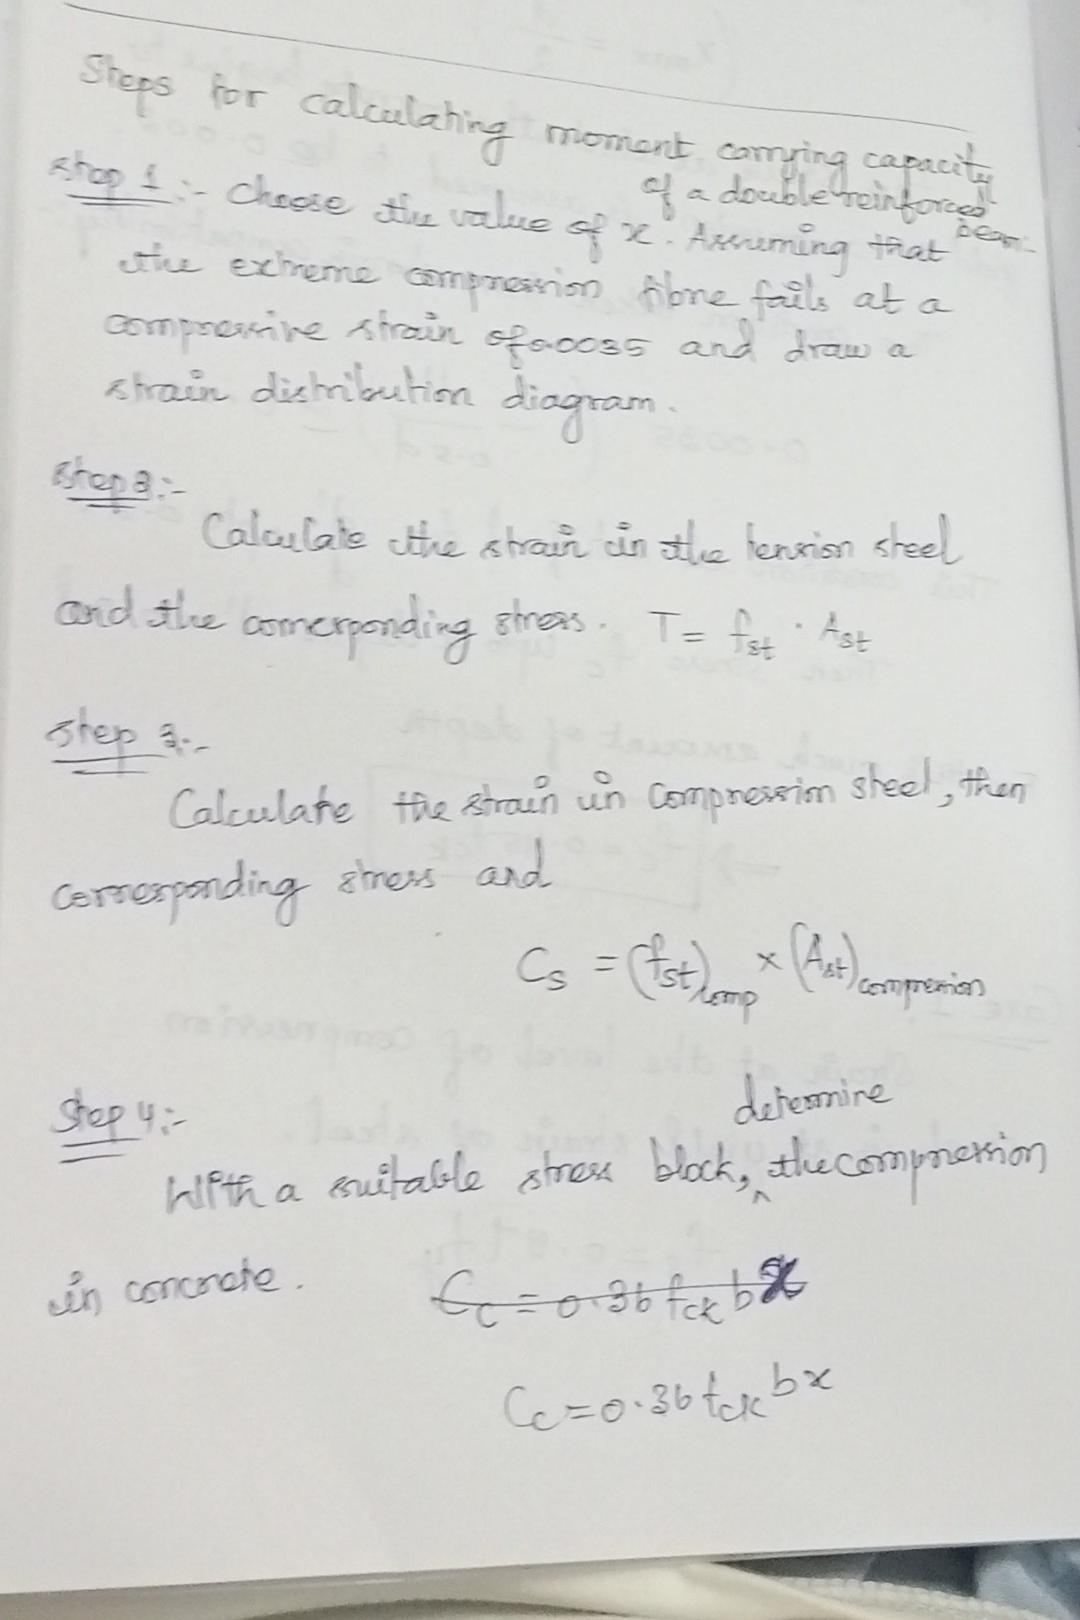 Steps for calculating moment carrying capacity
of a double reinforced beam.
Step 1 :- Choose the value of x. Assuming that
the extreme compression fibre fails at a
compressive strain of 0.0035 and draw a
strain distribution diagram.
Step 2:-
Calculate the strain in the tension steel
and the corresponding stress. T = fst . Ast
Step 3:-
Calculate the strain in compression steel, then
corresponding stress and
Cs = (fst)comp × (Ast)compression
Step 4:-
determine
With a suitable stress block, ^ the compression
in concrete. Cc = 0.36 fck b x
Cc = 0.36 fck bx